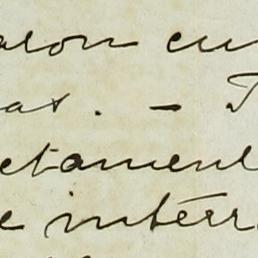 aron en
as. - T
ctament
e intérr